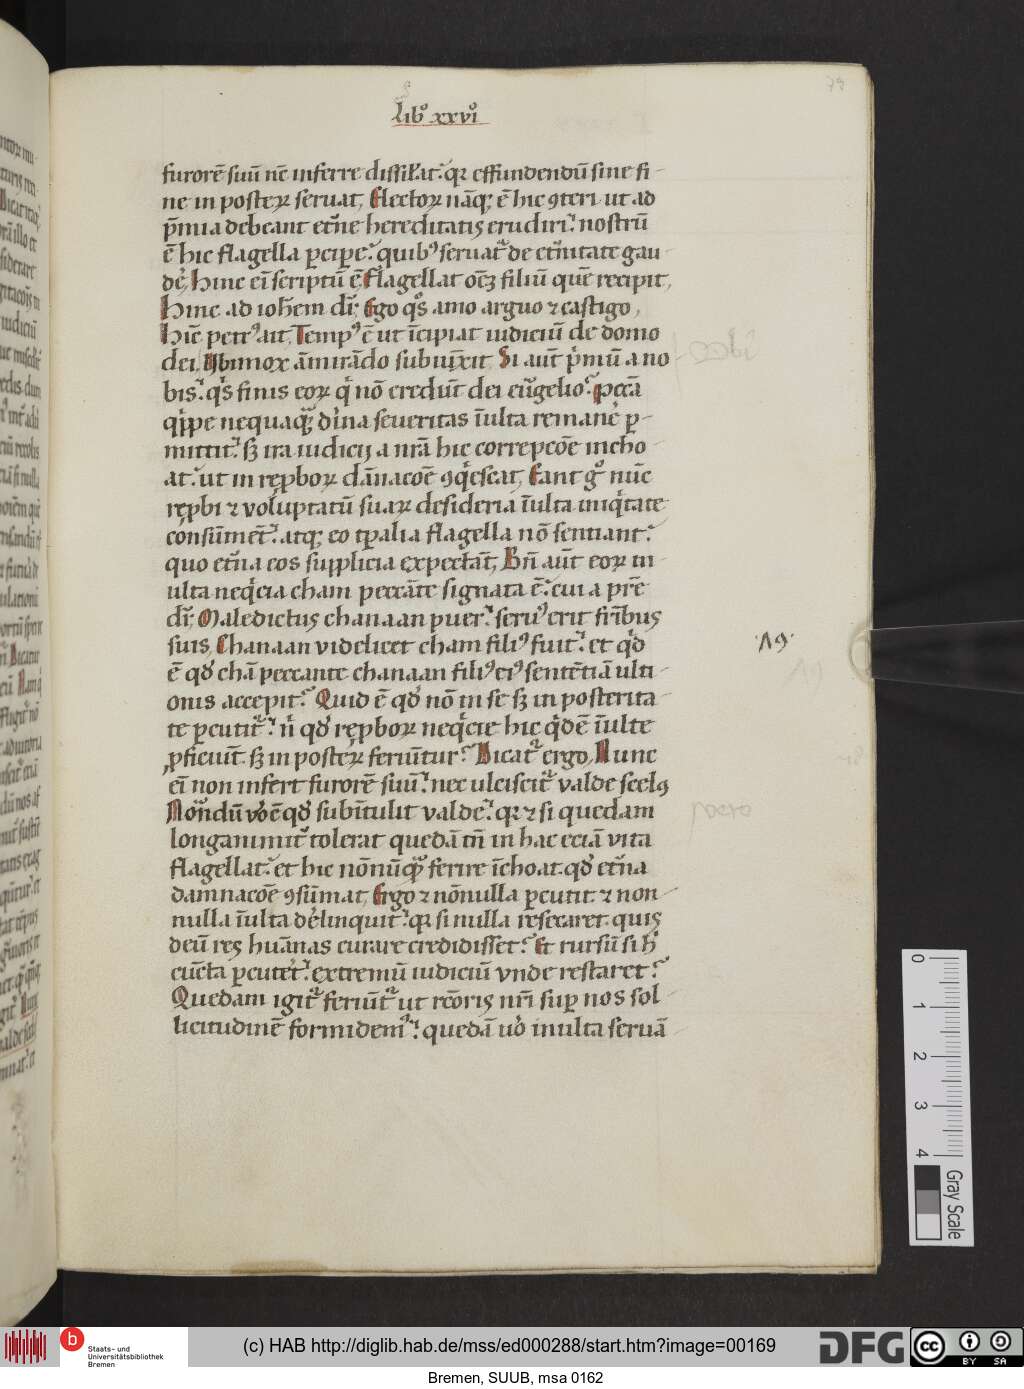 79
Libº xxviº
furorē suū nc̄ inferre dissiłat᷑. qꝛ effundendū sine fi-
ne in posteꝝ seruat, Electoꝝ nāqꝫ ē hic ꝯteri ut ad
p̄mia debeant et̄ne hereditatis erudiri. nostrū
ē hic flagella ꝑcipe᷑. quibꝰ seruat᷑ de et̄nitate gau-
de᷑, Hinc ei̅ scriptū ē Flagellat oēꝫ filiū quē recipit,
Hinc ad ioh̄em dr̄. Ego qͦs amo arguo ⁊ castigo,
Hīc petrꝰ ait. Tempꝰ ē ut īcipiat iudiciū de domo
dei, Ubi mox āmirādo subiūxit Si aūt p̍mū a no-
bis. qͥs finis eoꝝ qͥ nō credūt dei eūgelio. Pctā
qͥppe nequaqͣꝫ di̍na seueritas īulta remane᷑ ꝑ-
mittit. sꝫ ira iudicij a nr̄a hic correpcōe incho-
at᷑. ut in repꝛboꝝ dānacōē ꝯqͥescat, Eant gͦ nūc
repꝛbi ⁊ voluptatū suaꝝ desideria īulta iniqͥtate
consūmēt. atqꝫ eo tꝑalia flagella nō sentiant.
quo et̄na eos supplicia expectāt, Bn̄ aūt eoꝝ in-
ulta neqͥcia cham peccāte signata ē. cui a pr̄e
dr̄. Maledictus chanaan puer. seruꝰ erit fr̄ibus
suis, Chanaan videlicet cham filiꝰ fuit. et qͥd
.19.
ē qd̍ chā peccante chanaan filiꝰ eiꝰ sentētiā ulti-
onis accepit. Quid ē qd̍ nō in se sꝫ in posterita-
te ꝑcutit᷑. n̍ qd̍ repꝛboꝝ neqͥcie hic qͥdē īulte
ꝓficiūt. sꝫ in posteꝝ feriūtur. Dicat᷑ ergo, Nunc
ei̅ non infert furorē suū. nec ulciscit᷑ valde scelꝰ
Nondū vo᷑ ē qd̍ subītulit valde. qꝛ ⁊ si quedam
longanimit᷑ tolerat quedā tn̄ in hac eciā vita
flagellat. et hic nōnūqͣꝫ ferire īchoat. qd̍ et̄na
damnacōe ꝯsūmat, Ergo ⁊ nōnulla ꝑcutit ⁊ non-
nulla īulta de᷑linquit. qꝛ si nulla resecaret. quis
deū res huānas curare credidisset. Et rursū si h̍
cūcta ꝑcute᷑t. extremū iudiciū vnde restaret.
Quedam igit᷑ feriūt᷑ ut rc̄oris nr̄i suꝑ nos sol-
licitudinē formidemꝰ. quedā uo᷑ inulta seruā-
0
1
2
3
4
Gray Scale
b
Staats- und
Universitätsbibliothek
Bremen
(c) HAB http://diglib.hab.de/mss/ed000288/start.htm?image=00169
DFG
cc
BY SA
Bremen, SUUB, msa 0162